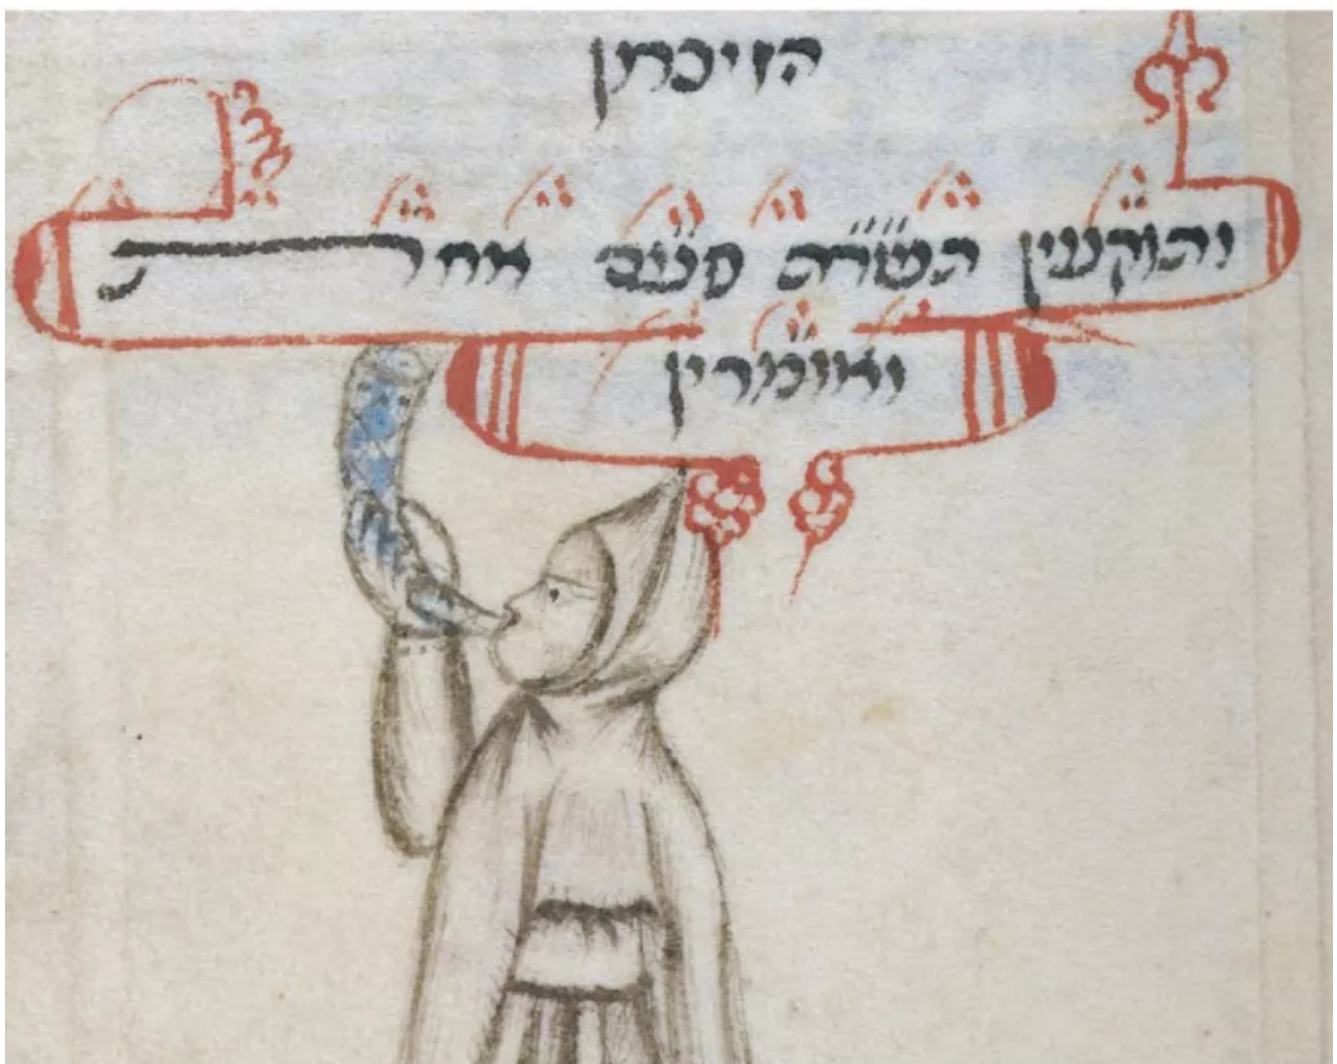 הזיכרון
ותוקעין תשר״ת פעם אחת
ואומרין